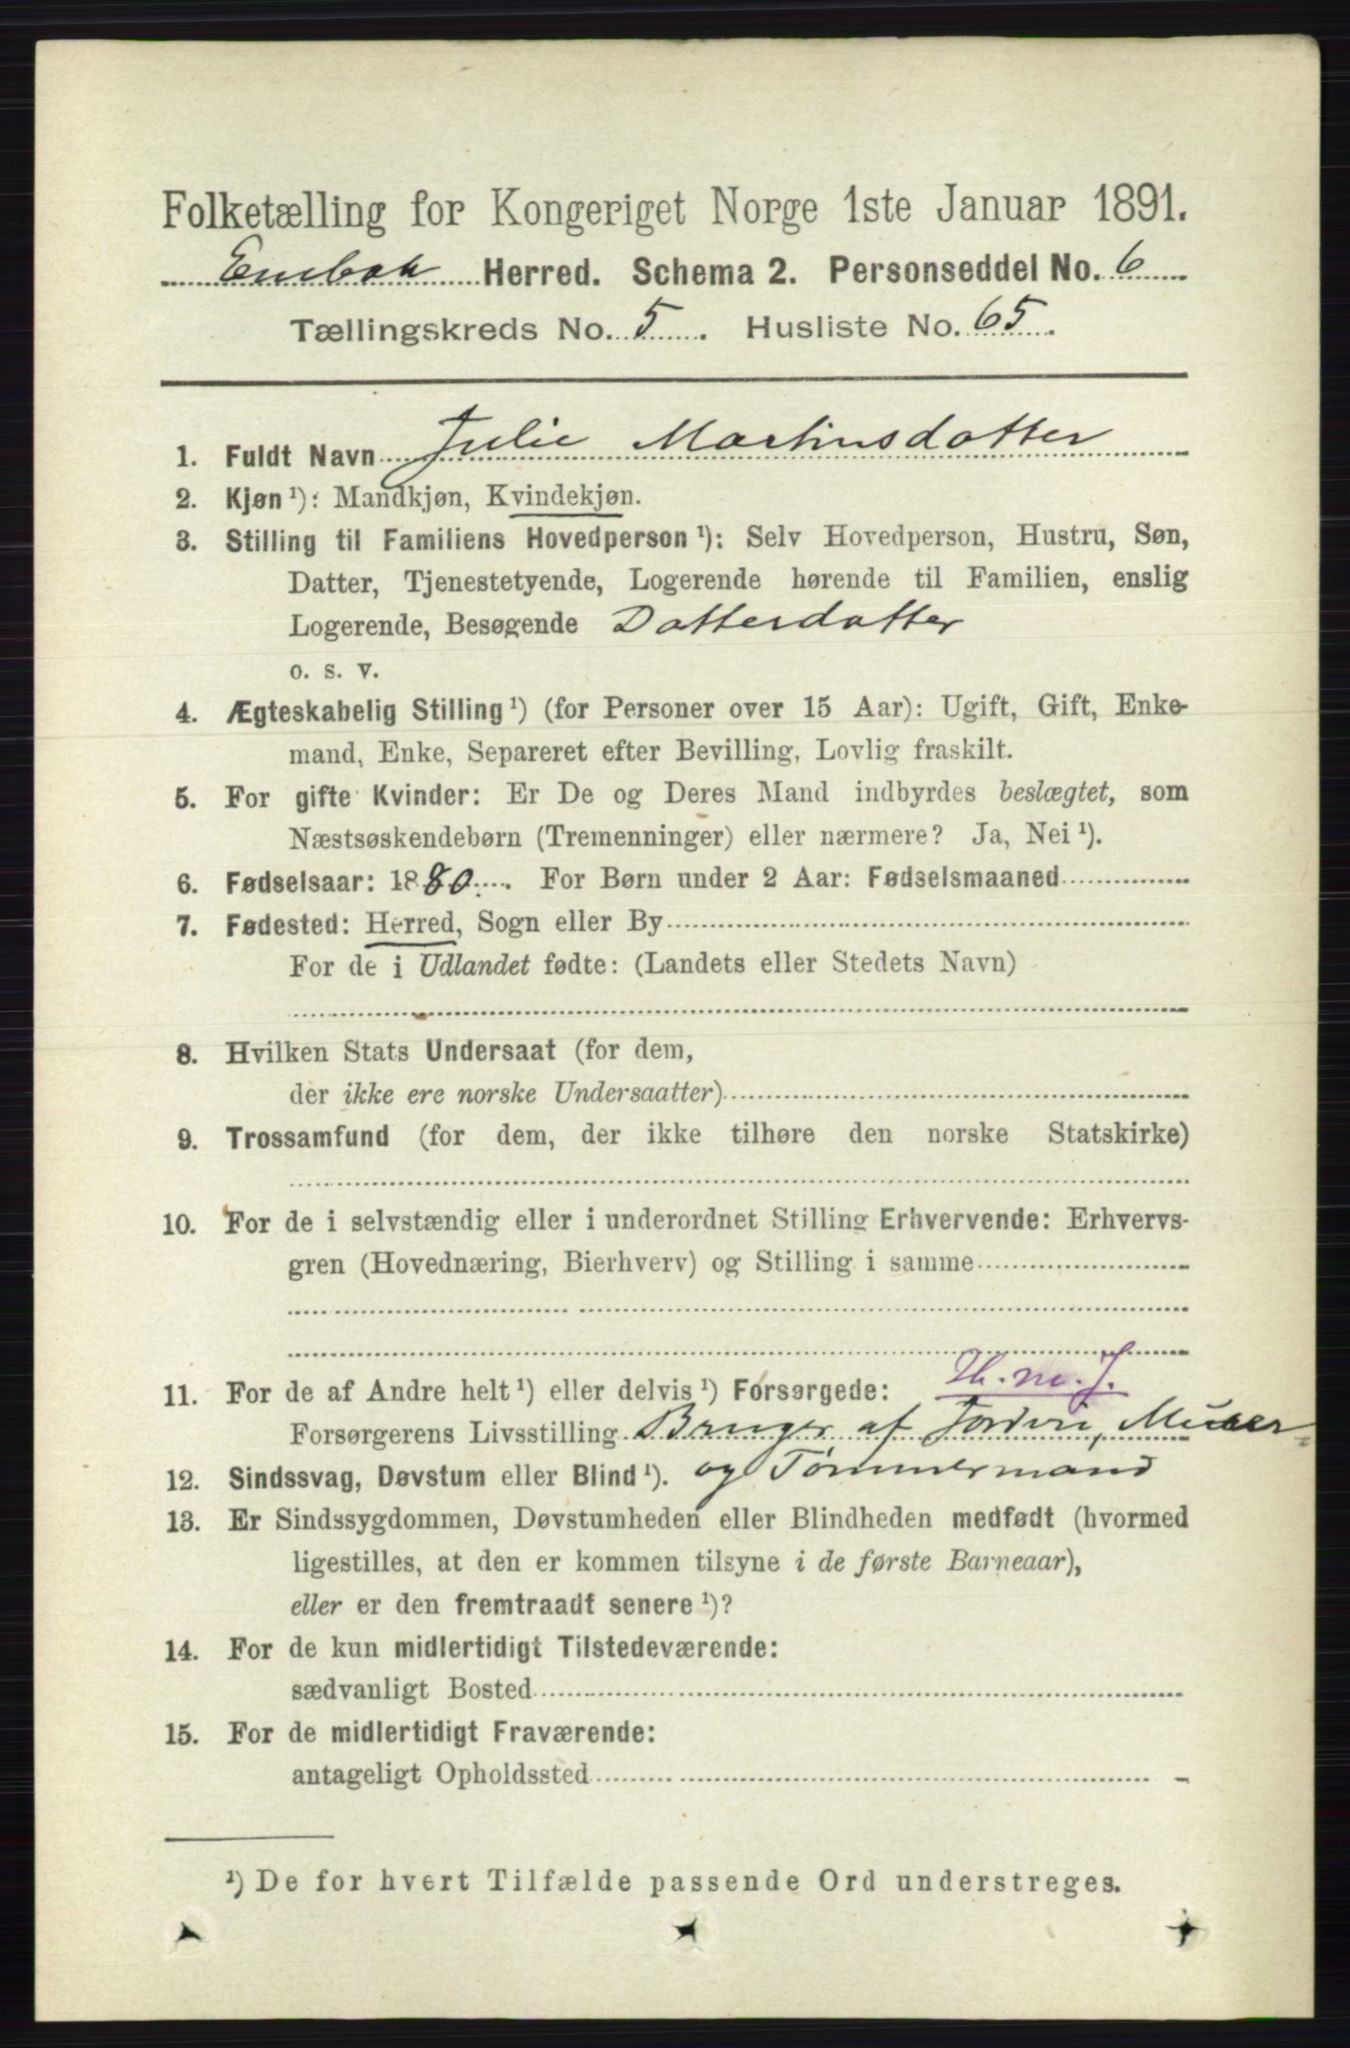 Folketælling for Kongeriget Norge 1ste Januar 1891.
Enebak Herred. Schema 2. Personseddel No. 6
Tællingskreds No. 5. Husliste No. 65.
1. Fuldt Navn Julie Martinsdatter
2. Kjøn¹): Mandkjøn, Kvindekjøn.
3. Stilling til Familiens Hovedperson¹): Selv Hovedperson, Hustru, Søn,
Datter, Tjenestetyende, Logerende hørende til Familien, enslig
Logerende, Besøgende Datterdatter
o. s. v.
4. Ægteskabelig Stilling¹) (for Personer over 15 Aar): Ugift, Gift, Enke-
mand, Enke, Separeret efter Bevilling, Lovlig fraskilt.
5. For gifte Kvinder: Er De og Deres Mand indbyrdes beslægtet, som
Næstsøskendebørn (Tremenninger) eller nærmere? Ja, Nei¹).
6. Fødselsaar: 1880. For Børn under 2 Aar: Fødselsmaaned
7. Fødested: Herred, Sogn eller By
For de i Udlandet fødte: (Landets eller Stedets Navn)
8. Hvilken Stats Undersaat (for dem,
der ikke ere norske Undersaatter)
9. Trossamfund (for dem, der ikke tilhøre den norske Statskirke)
10. For de i selvstændig eller i underordnet Stilling Erhvervende: Erhvervs-
gren (Hovednæring, Bierhverv) og Stilling i samme
H. m. J.
11. For de af Andre helt¹) eller delvis¹) Forsørgede:
Forsørgerens Livsstilling Bruger af Jorden, Murer-
og Tømmermand
12. Sindssvag, Døvstum eller Blind¹).
13. Er Sindssygdommen, Døvstumheden eller Blindheden medfødt (hvormed
ligestilles, at den er kommen tilsyne i de første Barneaar),
eller er den fremtraadt senere¹)?
14. For de kun midlertidigt Tilstedeværende:
sædvanligt Bosted
15. For de midlertidigt Fraværende:
antageligt Opholdssted
¹) De for hvert Tilfælde passende Ord understreges.